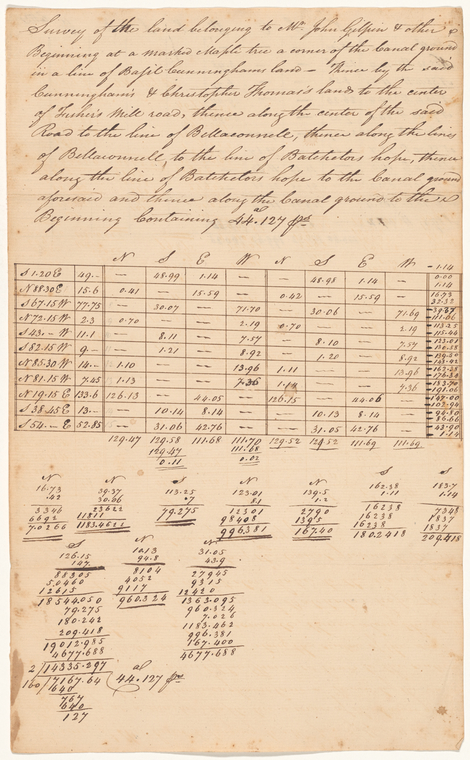 Survey of the land belonging to Mr. John Gilpin & other
Beginning at a marked Maple tree a corner of the Canal ground
in a line of Basil Cunninghams land – Thence by the said
Cunningham's & Christopher Thomas's lands to the center
of Fisher's Mill road, thence along the center of the said
Road to the line of Bellaconnell, thence along the lines
of Bellaconnell, to the line of Batchelors hope, thence
along the line of Batchelors hope to the Canal ground
aforesaid and thence along the Canal ground to the
Beginning Containing 44.127
N S E W N S E W
S 1.20 E 49.– — 48.99 1.14 — — 48.98 1.14 —
N 88.30 E 15.6 0.41 — 15.59 — 0.42 — 15.59 —
S 67.15 W 77.75 — 30.07 — 71.70 — 30.06 — 71.69
N 72.15 W 2.3 0.70 — — 2.19 0.70 — — 2.19
S 43.– W 11.1 — 8.11 — 7.57 — 8.10 — 7.57
S 82.15 W 9.– — 1.21 — 8.92 — 1.20 — 8.92
N 85.30 W 14.– 1.10 — — 13.96 1.11 — — 13.96
N 81.15 W 7.45 1.13 — — 7.36 — — 7.36
N 19.15 E 133.6 126.13 — 44.05 — 126.15 — 44.06 —
S 38.45 E 13.– — 10.14 8.14 — — 10.13 8.14 —
S 54.– E 52.85 — 31.06 42.76 — — 31.05 42.76 —
129.47 129.58 111.68 111.70 129.52 129.52 111.69 111.69
129.47 111.68
0.11 0.02
N N S N N S S
16.73 39.37 113.25 123.01 139.5 162.38 183.7
.42 30.06 .7 8.1 1.2 1.11 1.14
3346 23622 79.275 12301 2790 16238 7348
6692 11811 98408 1395 16238 1837
7.0266 1183.4621 996381 167.40 16238 1837
180.2418 209.418
S N N
126.15 10.13 31.05
147. 94.8 43.9
88305 8104 27945
50460 4052 9315
12615 9117 12420
18544.050 960.324 1363.095
79.275 960.324
180.242 7.026
209.418 1183.462
19012.985 996.381
4677.688 167.400
4677.688
2 14335.297
160 7167.64 44.127
640
767
640
127